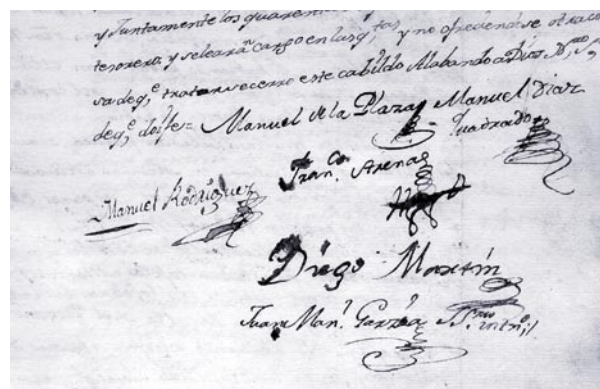 y Juntamente los quarenta
tesorero, y se leará cargo en las q.tas y no ofreciendose otra co
sa de q.e tratar se cerro este cabildo Alabando a Dios N.ro S.r
de q.e doi fe= Manuel de la Plaza Manuel Diaz
Quadrado
Fran.co Arenas
Manuel Rodriguez
Diego Martin
Juan Man.l Garzia